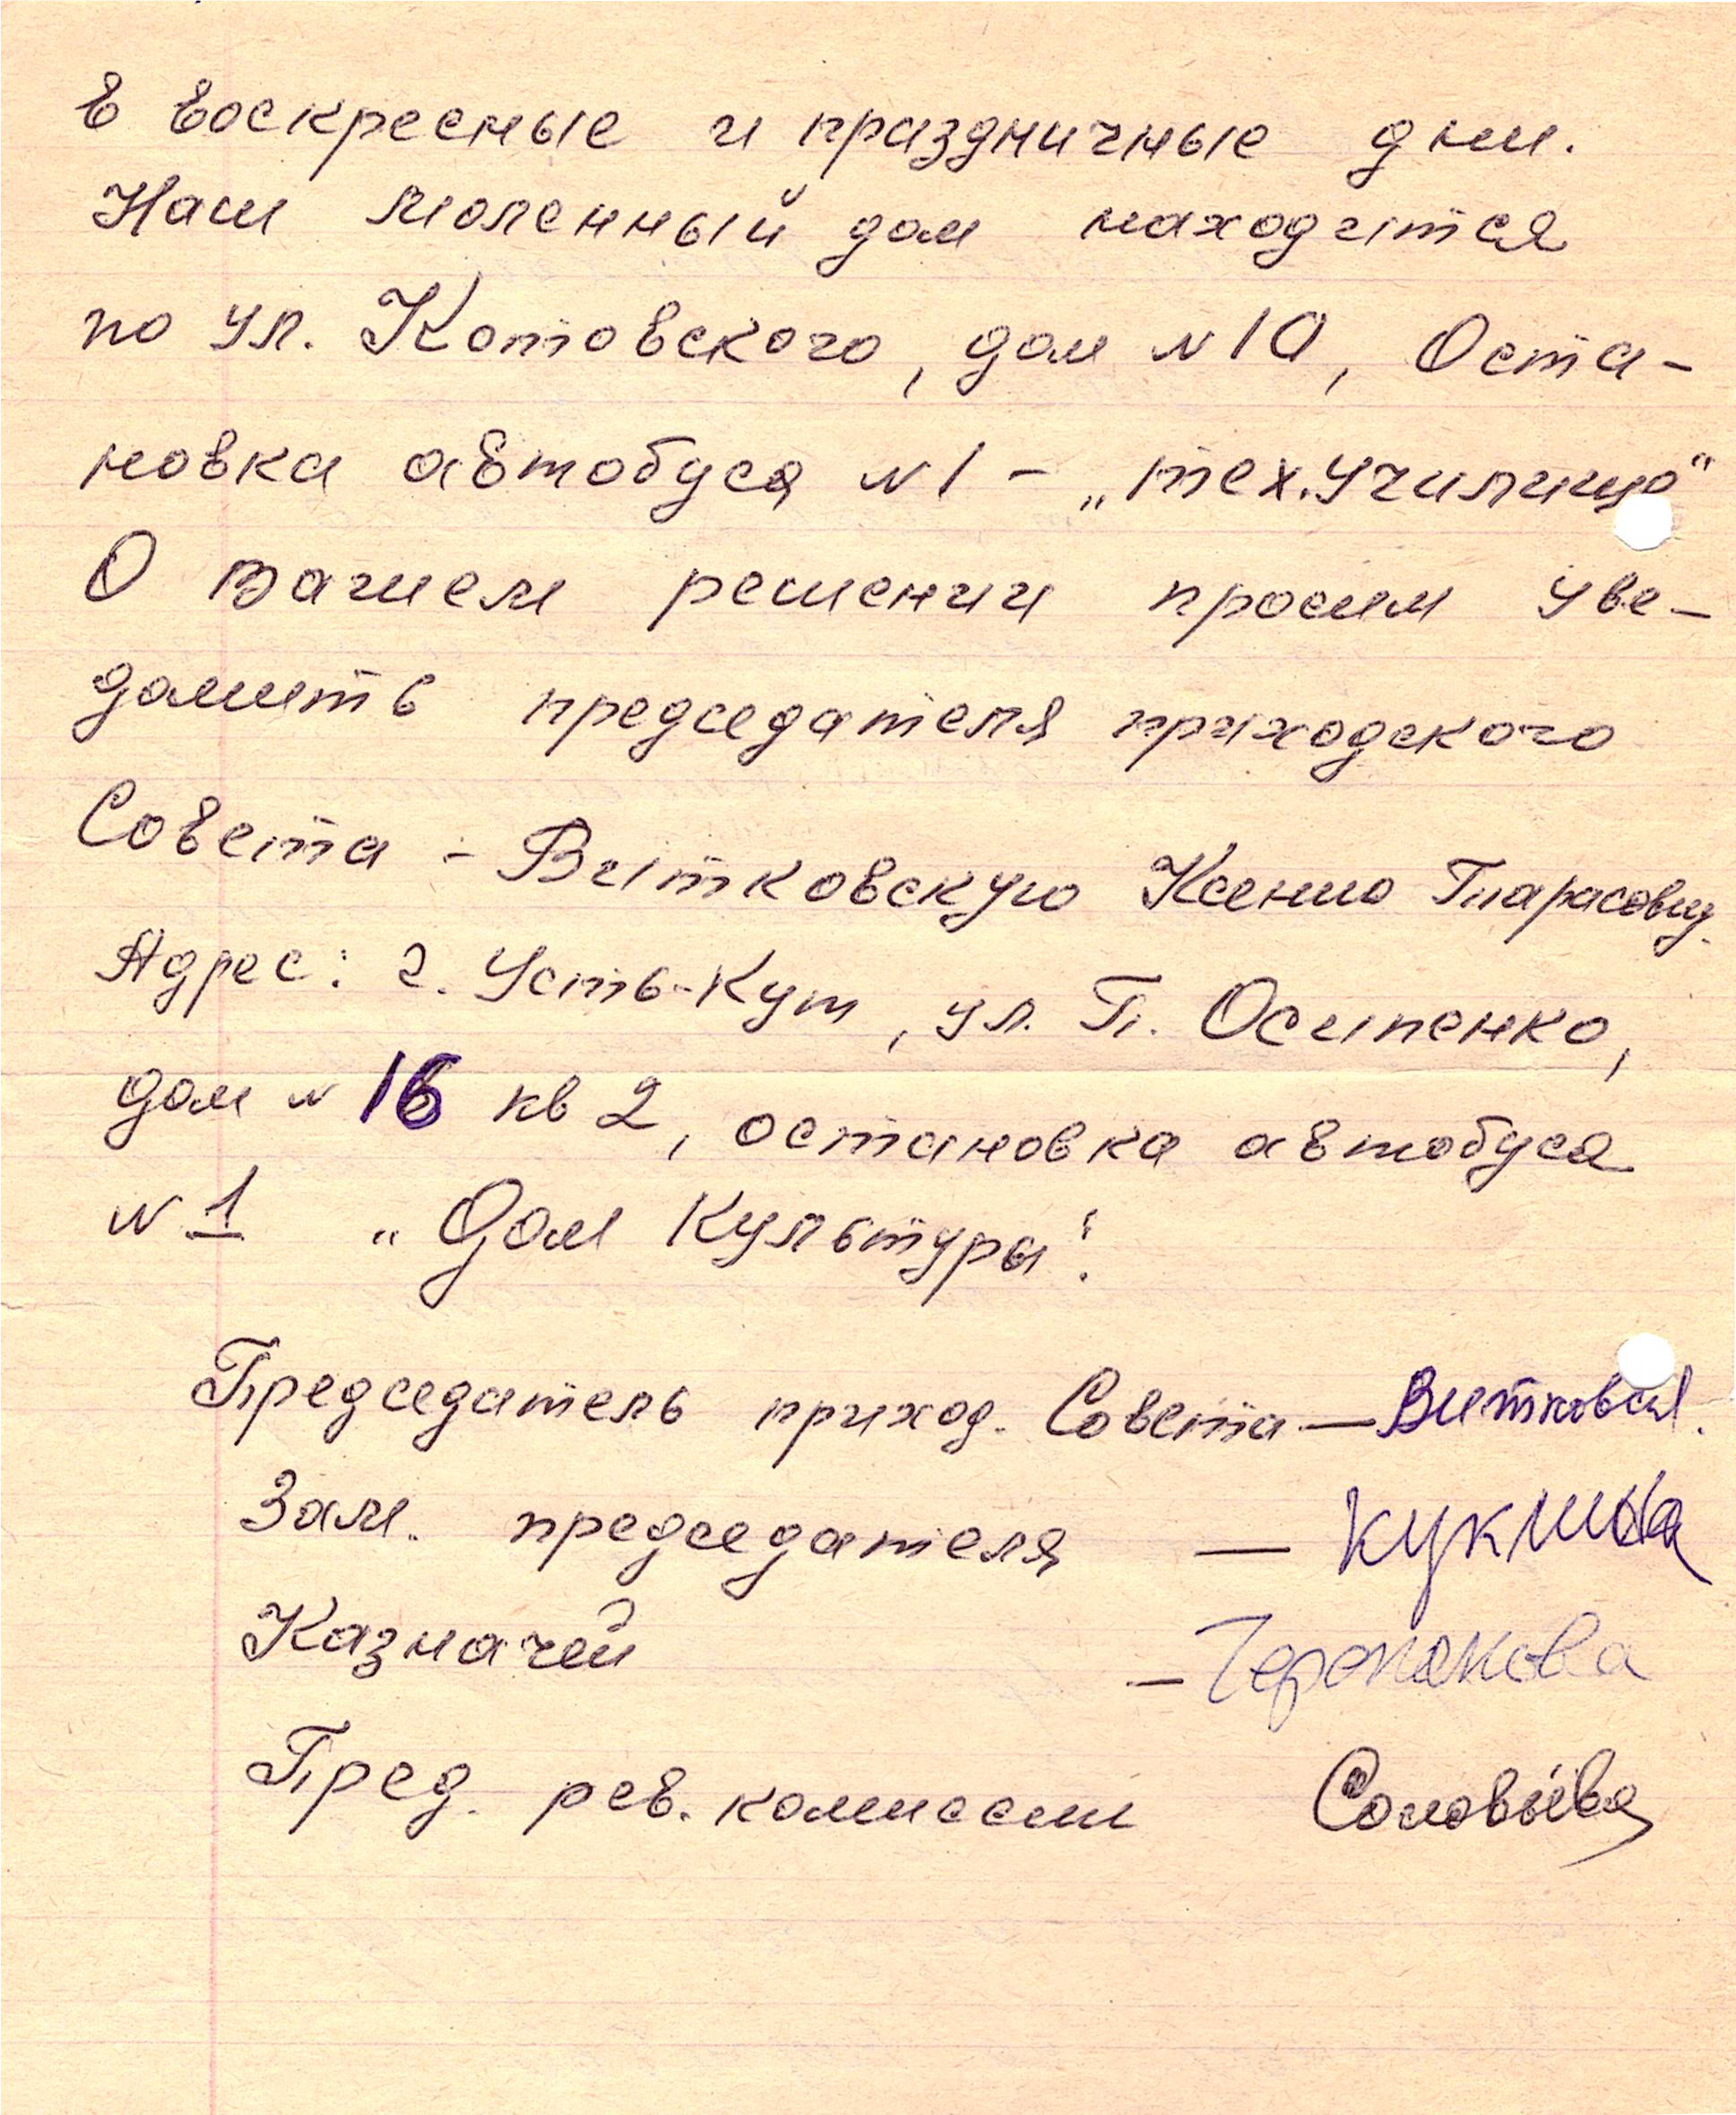 в воскресные и праздничные дни.
Наш моленный дом находится
по ул. Котовского, дом №10, Оста-
новка автобуса №1 – „тех.училище“
О Вашем решении просим уве-
домить председателя приходского
Совета – Витковскую Ксению Тарасовну.
Адрес: г. Усть-Кут, ул. П. Осипенко,
дом № 16 кв 2, остановка автобуса
№ 1 „Дом Культуры“.
Председатель приход. Совета – Витковск.
Зам. председателя – Куклина
Казначей –
Пред. рев. комиссии Соловьёва